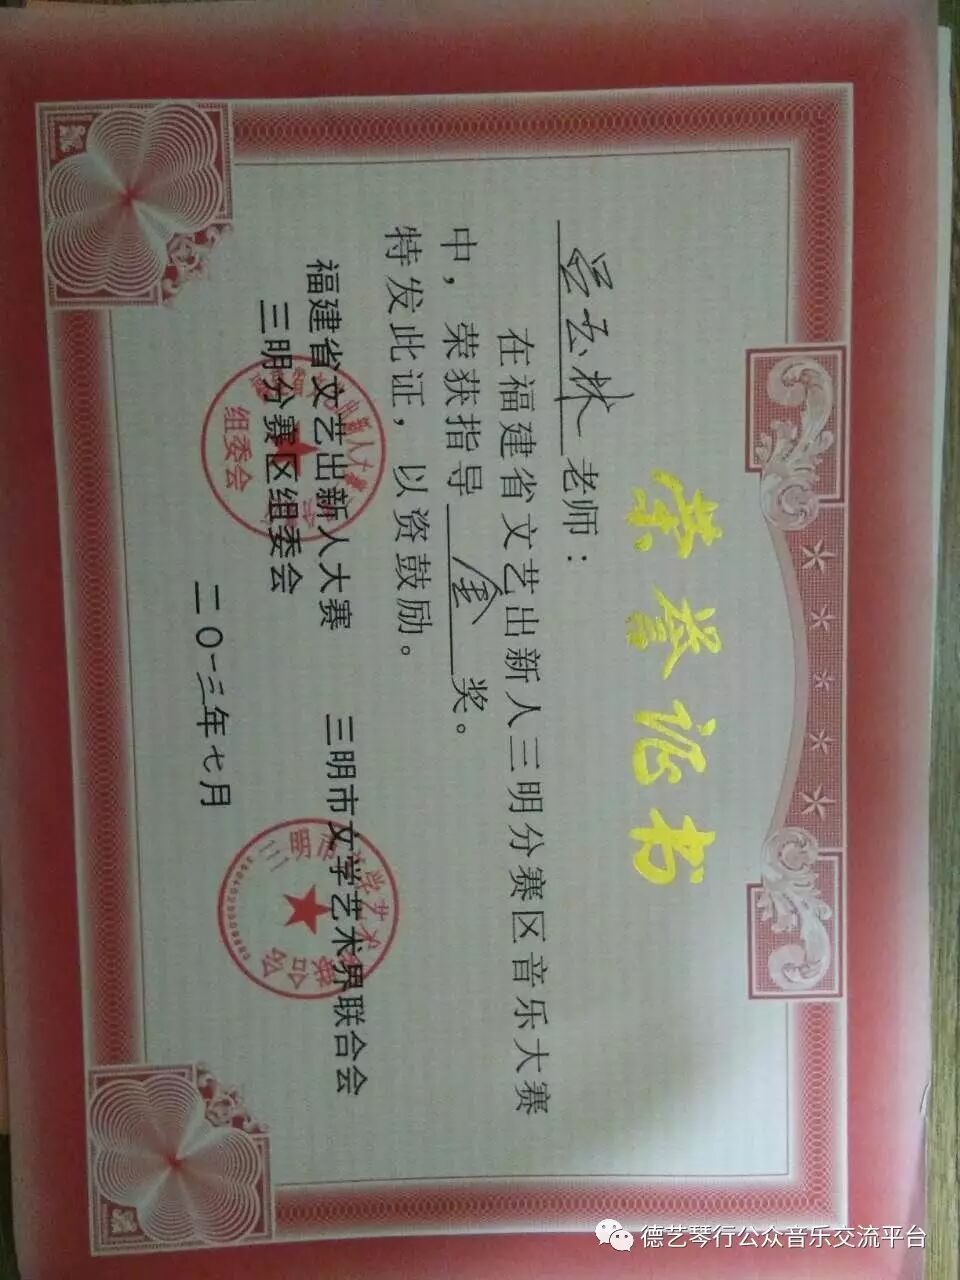 荣誉证书
老师：
在福建省文艺出新人三明分赛区音乐大赛
中，荣获指导 金 奖。
特发此证，以资鼓励。
福建省文艺出新人大赛 三明市文学艺术界联合会
三明分赛区组委会
二〇一三年七月
组委会
德艺琴行公众音乐交流平台